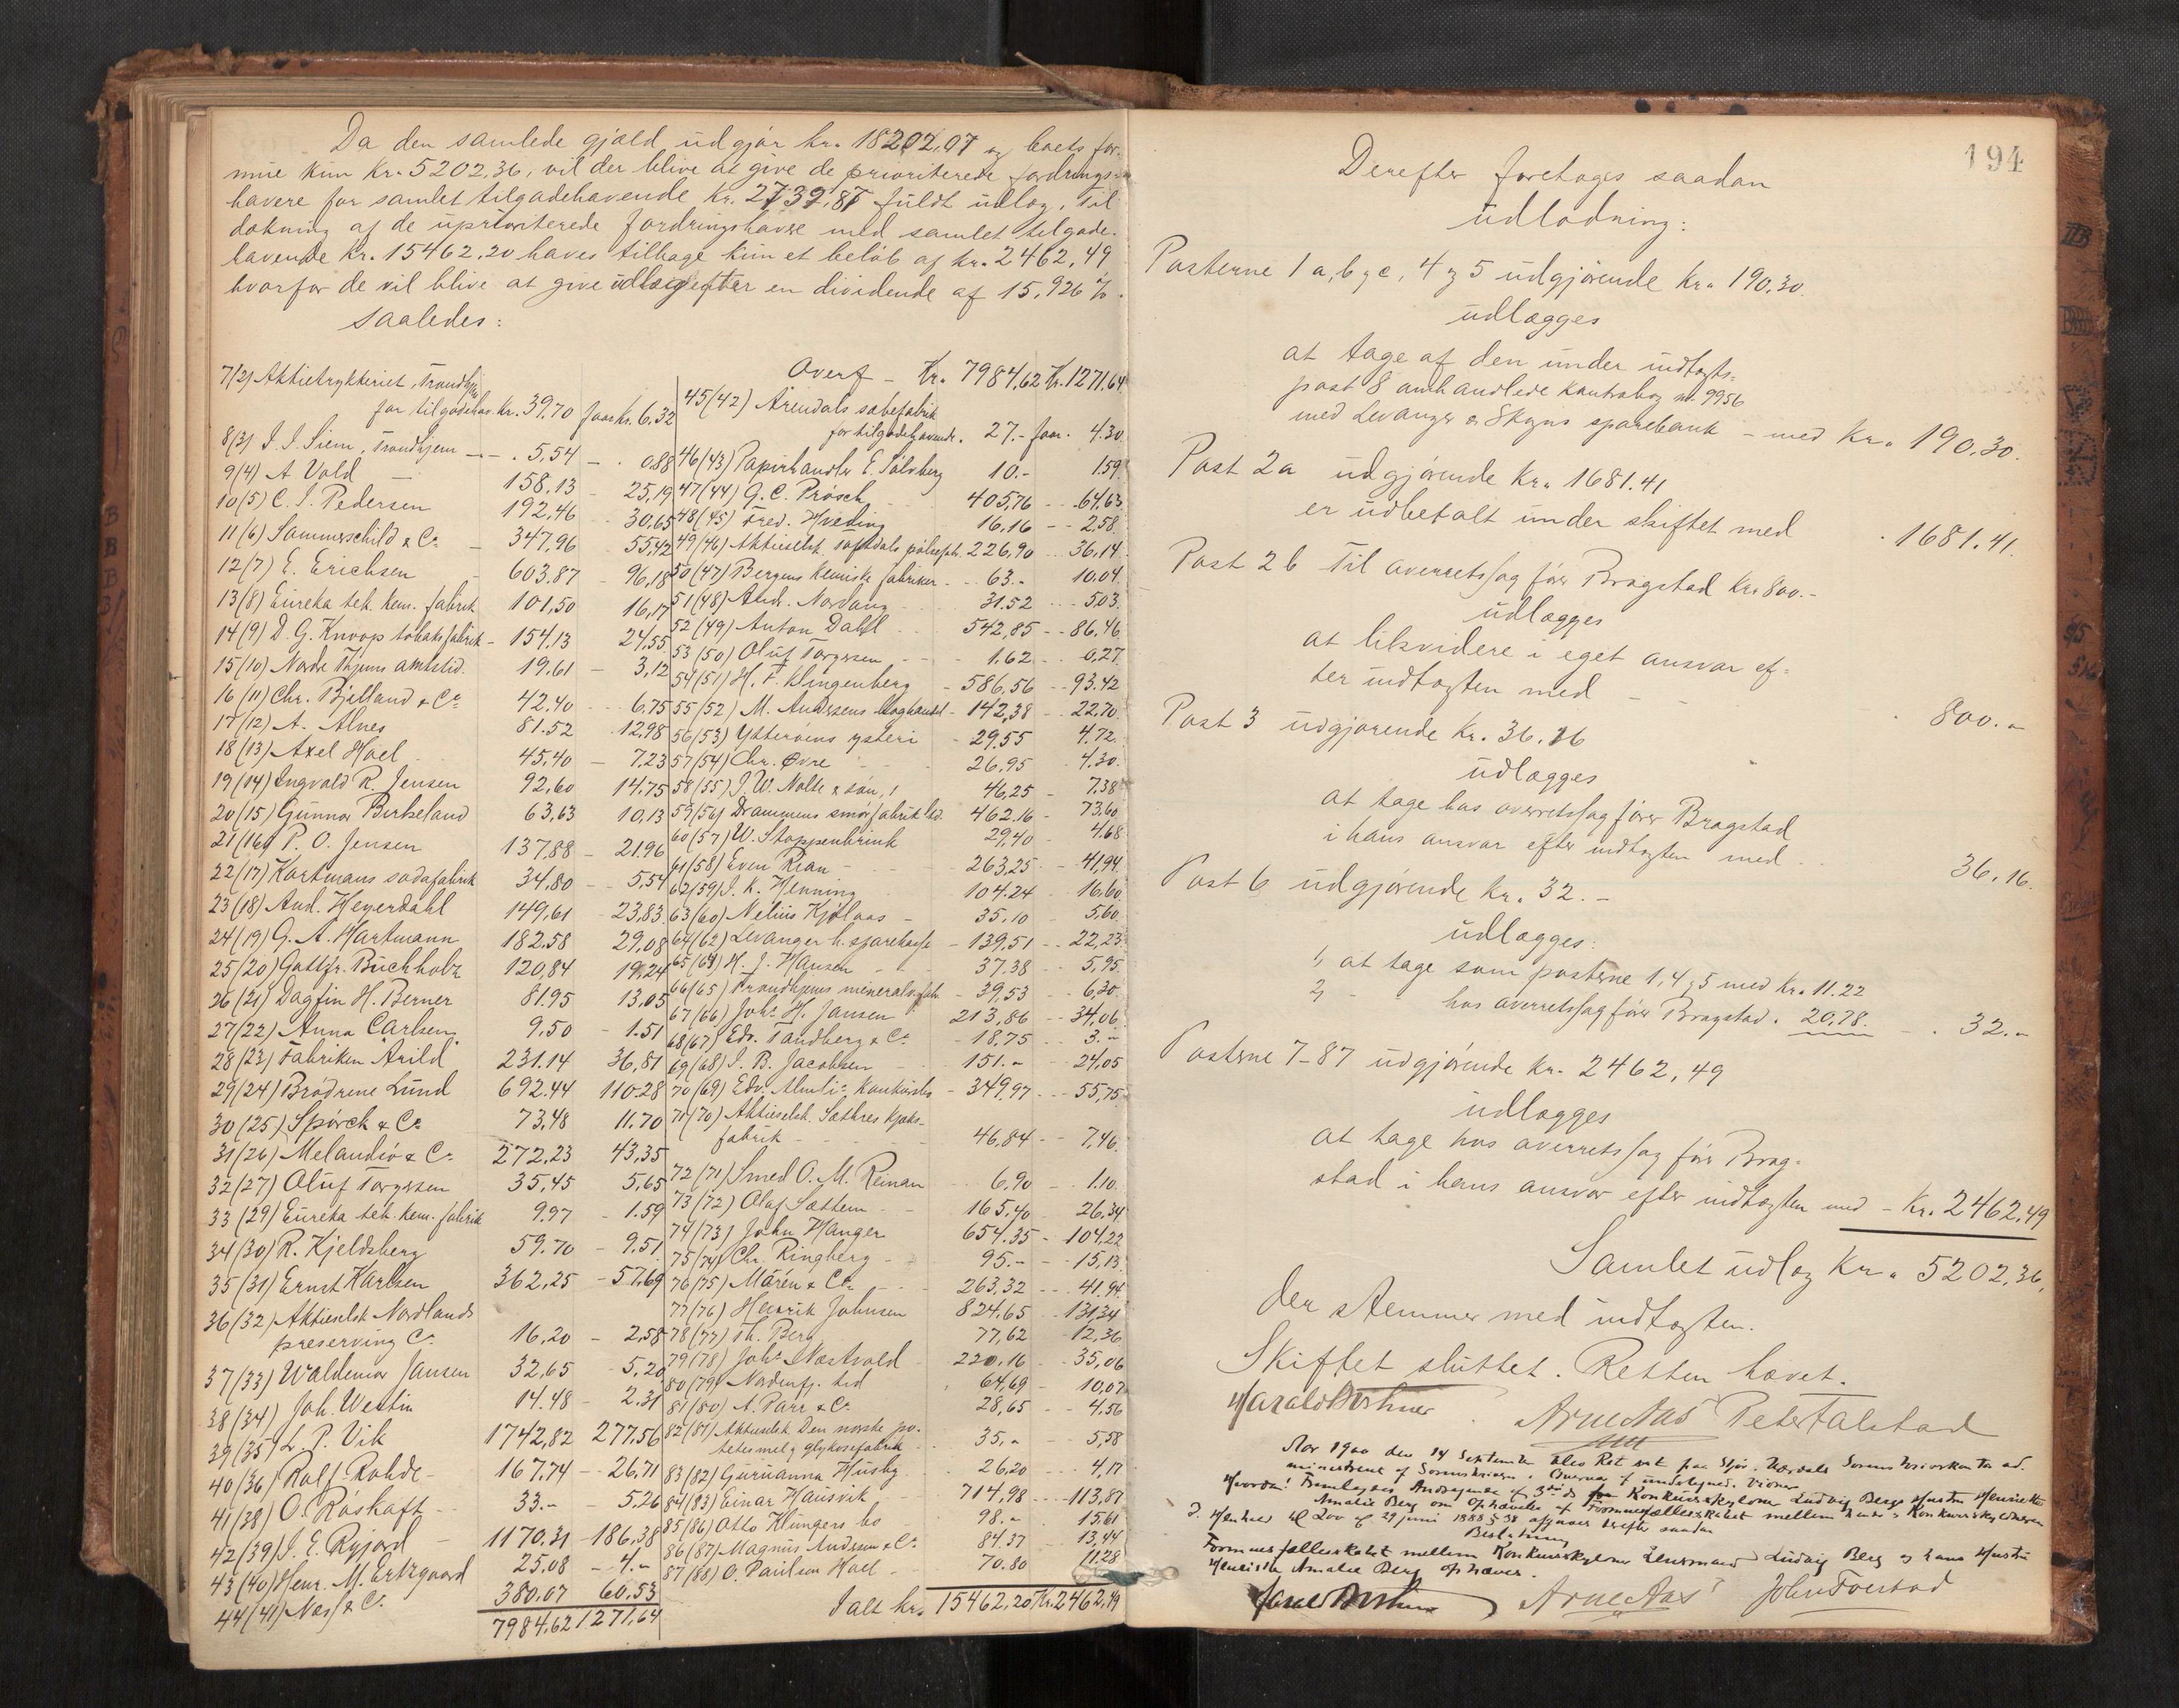 Da den samlede gjæld udgjør kr. 18202,07 og boets for-
mue kun kr. 5202,36, vil der blive at give de prioriterede fordrings-
havere for samlet tilgodehavende kr. 2739,87 fuldt udlæg. Til
dækning af de uprioriterede fordringshavere med samlet tilgode-
havende kr. 15462,20 haves tilbage kun et beløb af kr. 2462,49
hvorfor de vil blive at give udlæg efter en dividende af 15,926 %.
saaledes:
7/2) Aktietrykkeriet, Trondhjem
for tilgodehav. kr. 39.70 faar kr. 6.32
8(3) J. J. Siem, Trondhjem - 5,54 - 0,88
9(4) A. Vold 158.13 25,19
10(5) C. J. Pedersen 192,46 30,65
11(6) Sommerschild & Co 347,96 55,42
12(7) E. Erichsen 603.87 96,18
13(8) Eureka tek. kem. fabrik 101,50 16,17
14(9) D. G. Knoop tobaksfabrik - 154.13 24,55
15(10) Nordre Thjems amtstid. 19.61 - 3,12
16(11) Chr. Bjelland & Co 42.40 6.75
17(12) A. Alnes 81.52 12,98
18(13) Axel Hoel 45,40 - 7,23
19(14) Ingvald R. Jensen 92,60 14.75
20(15) Gunnar Birkeland 63,63 10,13
21(16) P. O. Jensen 137,88 - 21.96
22(17) Hartmans sodafabrik 34,80 - 5,54
23(18) And. Heyerdahl 149,61 - 23,83
24(19) G. A. Hartmann 182.58 29,08
25(20) Gottfr. Buchholz 120,84 19,24
26(21) Dagfin H. Berner 81.95 13.05
27(22) Anna Carlsen 9,50 - 1.51
28(23) Fabriken Arild 231.14 36,81
29(24) Brødrene Lund 692.44 110.28
30(25) Spørck & Co 73,48 11.70
31(26) Melandsø & Co 272,23 43,35
32(27) Oluf Torgersen 35,45 5,65
33(29) Eureka tek. kem. fabrik 9.97 - 1.59
34(30) R. Kjeldsberg 59.70 - 9,51
35(31) Ernst Karlsen 362,25 - 57,69
36(32) Aktieselsk. Nordlands
preserving Co 16,20 - 2,58
37(33) Waldemar Jansen 32,65 5,20
38(34) Joh. Westin 14.48 - 2.31
39(35) L. P. Vik 1742,82 277,56
40(36) Rolf Rohde - 167,74 - 26.71
41(38) O. Røskaft 33.- 5.26
42(39) J. E. Ryjord - 1170.31 - 186,38
43(40) Henr. M. Ertzgaard 25.08 - 4.-
44(41) Næss & Co 380.07 60,53
7984.62 1271,64
Overf - Kr. 7984,62 Kr. 1271,64
45(42) Arendals sæbefabrik
for tilgodehavende. 27.- faar. 4.30
46(43) Papirhandler E. Solberg 10.- 1.59
47(44) G. C. Prösch 405,76 - 64,63
48(45) Fred. Hveding 16,16 - 2.58
49(46) Aktieselsk. Toftdals pølsefab. 226,90 36,14
50(47) Bergens kemiske fabriker - 63.- 10.04
51(48) And. Nordang 31.52 - 5,03
52(49) Anton Dahl 542,85 - 86,46
53(50) Oluf Torgersen 1.62 - 0,27
54(51) H. F. Klingenberg - 586,56 - 93.42
55(52) M. Andersens boghandel - 142,38 - 22,70
56(53) Ytterøens ysteri - 29.55 4.72
57(54) Chr. Øvre 26,95 - 4.30
58(55) J. W. Nolte & søn 46,25 - 7,38
59(56) Drammens smørfabrik 462.16 - 73,60
60(57) W. Stoppenbrink 29,40 - 4,68
61(58) Even Rian - 263,25 - 41,94
62(59) J. K. Henning 104.24 - 16,60
63(60) Nelius Kjølaas - 35.10 - 5,60
64(62) Levanger h. sparekasse - 139,51 - 22,23
65(64) H. J. Hansen - 37.38 - 5,95
66(65) Trondhjems mineralv.fabr. - 39,53 - 6,30
67(66) Johs H. Jansen 213,86 - 34,06
68(67) Edv. Tandberg & Co - 18,75 - 3.-
69(68) J. B. Jacobsen 151.- 24,05
70(69) Edv. konkursbo - 349,97 - 55,75
71(70) Aktieselsk. Sætres kjæks-
fabrik - 46,84 - 7,46
72(71) Smed O. M. Reinan 6,90 - 1.10
73(72) Olaf Sættem 165,40 26,34
74(73) John Hanger 654.35 - 104,22
75(74) Chr. Ringberg - 95.- 15,13
76(75) Mörén & Co 263,32 - 41,94
77(76) Henrik Johnsen 824,65 131,34
78(77) Th. Berg 77,62 12,36
79(78) Johs Næstvold 220,16 - 35,06
80(79) Nordenfj. tid 64,69 - 10,07
81(80) A. Parr & Co 28,65 - 4,56
82(81) Aktieselsk. Den norske po-
tetesmel & glykosefabrik 35.- 5,58
83(82) Guruanna Husby 26.20 - 4,17
84(83) Einar Hausvik 714,98 - 113,87
85(86) Otto Klüngers bo 98.- 15,61
86(87) Magnus Andresen & Co 84.37 13,44
87(88) O. Paulson Hoel - 70.80 11,28
Ialt kr. 15462,20 Kr. 2462,49
194
Derefter foretoges saadan
udlodning:
Posterne 1 a, b, c, 4 og 5 udgjørende kr. 190,30.
udlægges
at tage af den under indtægts-
post 8 omhandlede kontrabog nr. 9956
med Levanger & Skogns sparebank - med Kr. 190.30.
Post 2a udgjørende kr. 1681.41
er udbetalt under skiftet med 1681.41.
Post 2 b Til overretssagfører Bragstad kr. 800.-
udlægges
at likvidere i eget ansvar ef-
ter indtægten med - 800.-
Post 3 udgjørende kr. 36.16
udlægges
at tage hos overretssagfører Bragstad
i hans ansvar efter indtægten med 36,16.
Post 6 udgjørende kr. 32.-
udlægges:
1, at tage som posterne 1, 4 og 5 med kr. 11.22
2, - hos overretssagfører Bragstad. 20,78. - 32.-
Posterne 7-87 udgjørende kr. 2462,49
udlægges
at tage hos overretssagfører Brag-
stad i hans ansvar efter indtægten med - Kr. 2462,49
Samlet udlæg Kr. 5202,36,
der stemmer med indtægten.
Skiftet sluttet. Retten hævet.
Arne Aas Peter Falstad
Aar 1900 den 14 September blev Ret sat paa Stjør- Værdals Sorenskriverkontor ad-
ministreret af Sorenskriveren. Overvær af undertegnede Vidner
Hvorda: Fremlagdes Andragende af 3die ds Konkursskyldner Ludvig Bergs Hustru Henriette
Amalie Berg om Ophævelse af Formuesfællesskabet mellem hende & Konkursskyldneren
I Henhold til Lov af 29 juni 1888 § 38 afgaves derefter saadan
Beslutning
Formuesfællesskabet mellem Konkursskyldner Lensmand Ludvig Berg og hans Hustru
Henriette Amalie Berg ophæves.
Arne Aas John Foestad